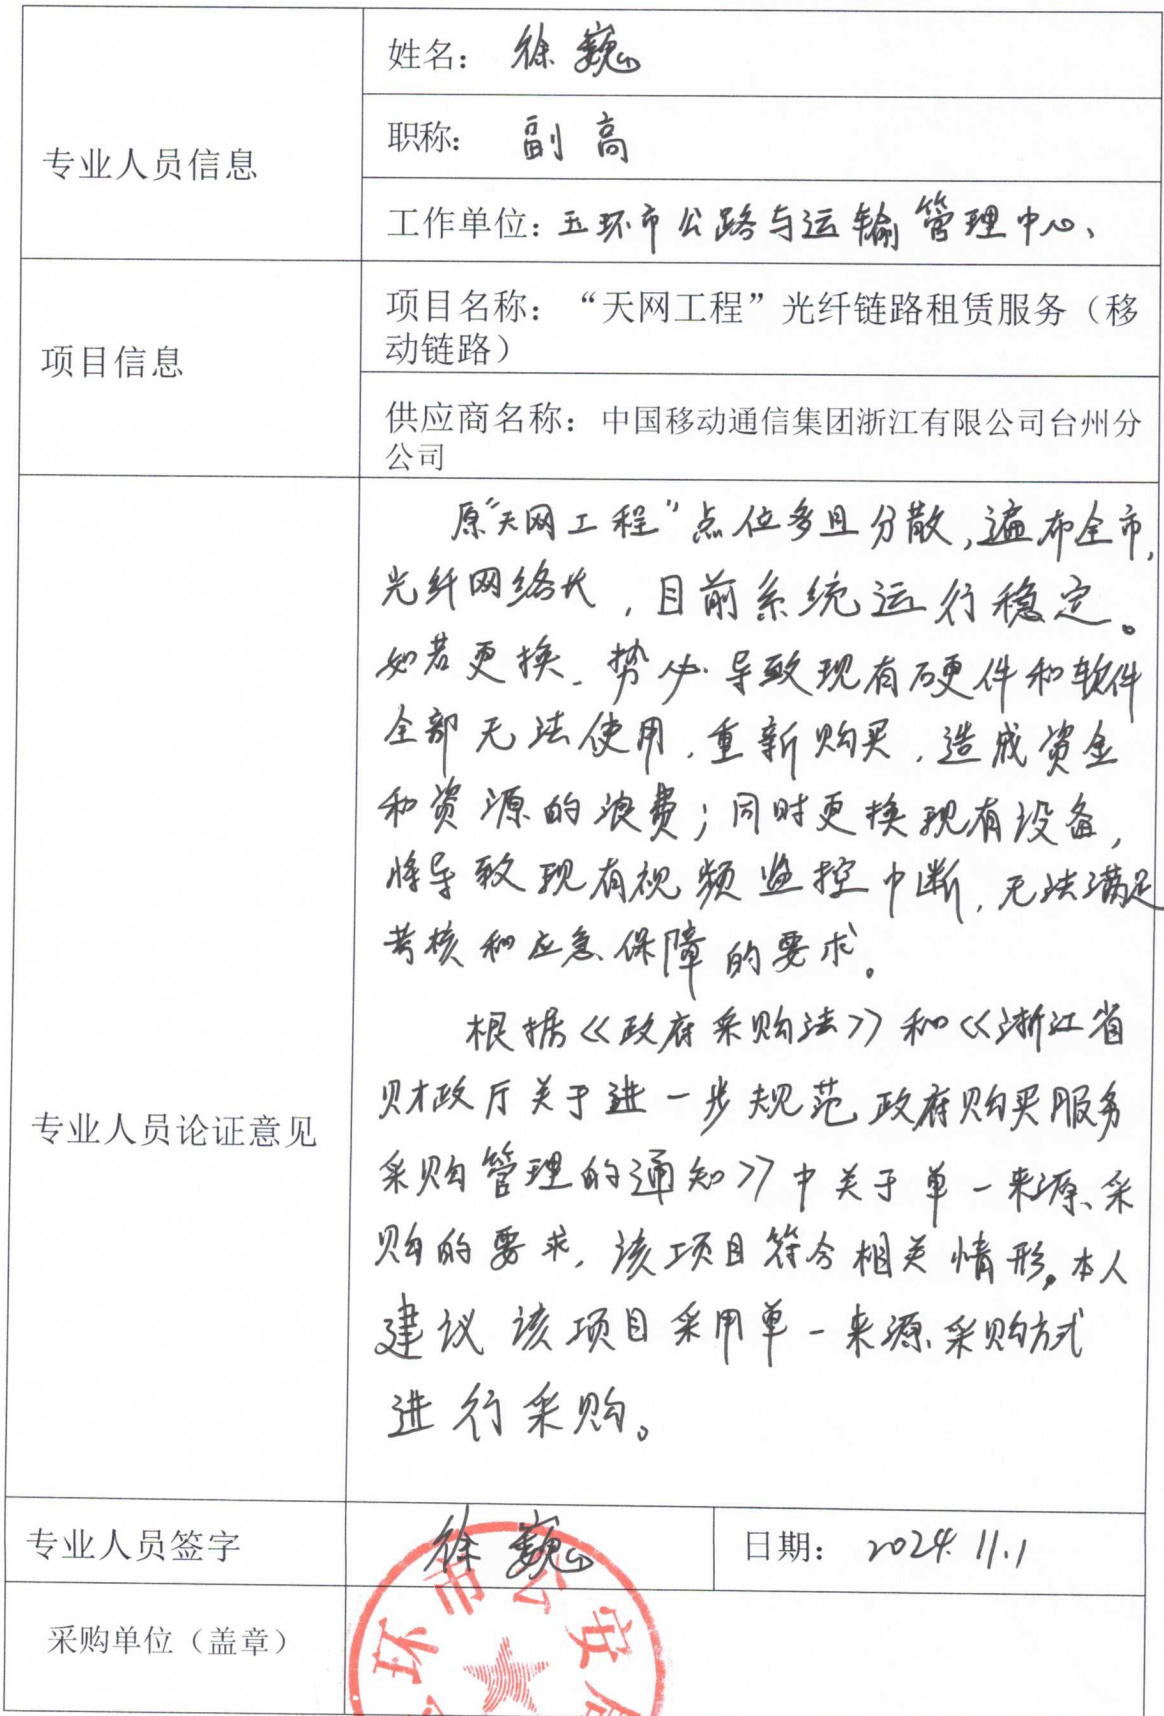 专业人员信息
姓名：徐巍
职称：副高
工作单位：玉环市公路与运输管理中心、
项目信息
项目名称：“天网工程”光纤链路租赁服务（移
动链路）
供应商名称：中国移动通信集团浙江有限公司台州分
公司
专业人员论证意见
原“天网工程”点位多且分散，遍布全市，
光纤网络大，目前系统运行稳定。
如若更换，势必导致现有硬件和软件
全部无法使用，重新购买，造成资金
和资源的浪费；同时更换现有设备，
将导致现有视频监控中断，无法满足
考核和应急保障的要求。
根据《政府采购法》和《浙江省
财政厅关于进一步规范政府购买服务
采购管理的通知》中关于单一来源采
购的要求，该项目符合相关情形。本人
建议该项目采用单一来源采购方式
进行采购。
专业人员签字
徐巍
日期：2024.11.1
采购单位（盖章）
环市公安局